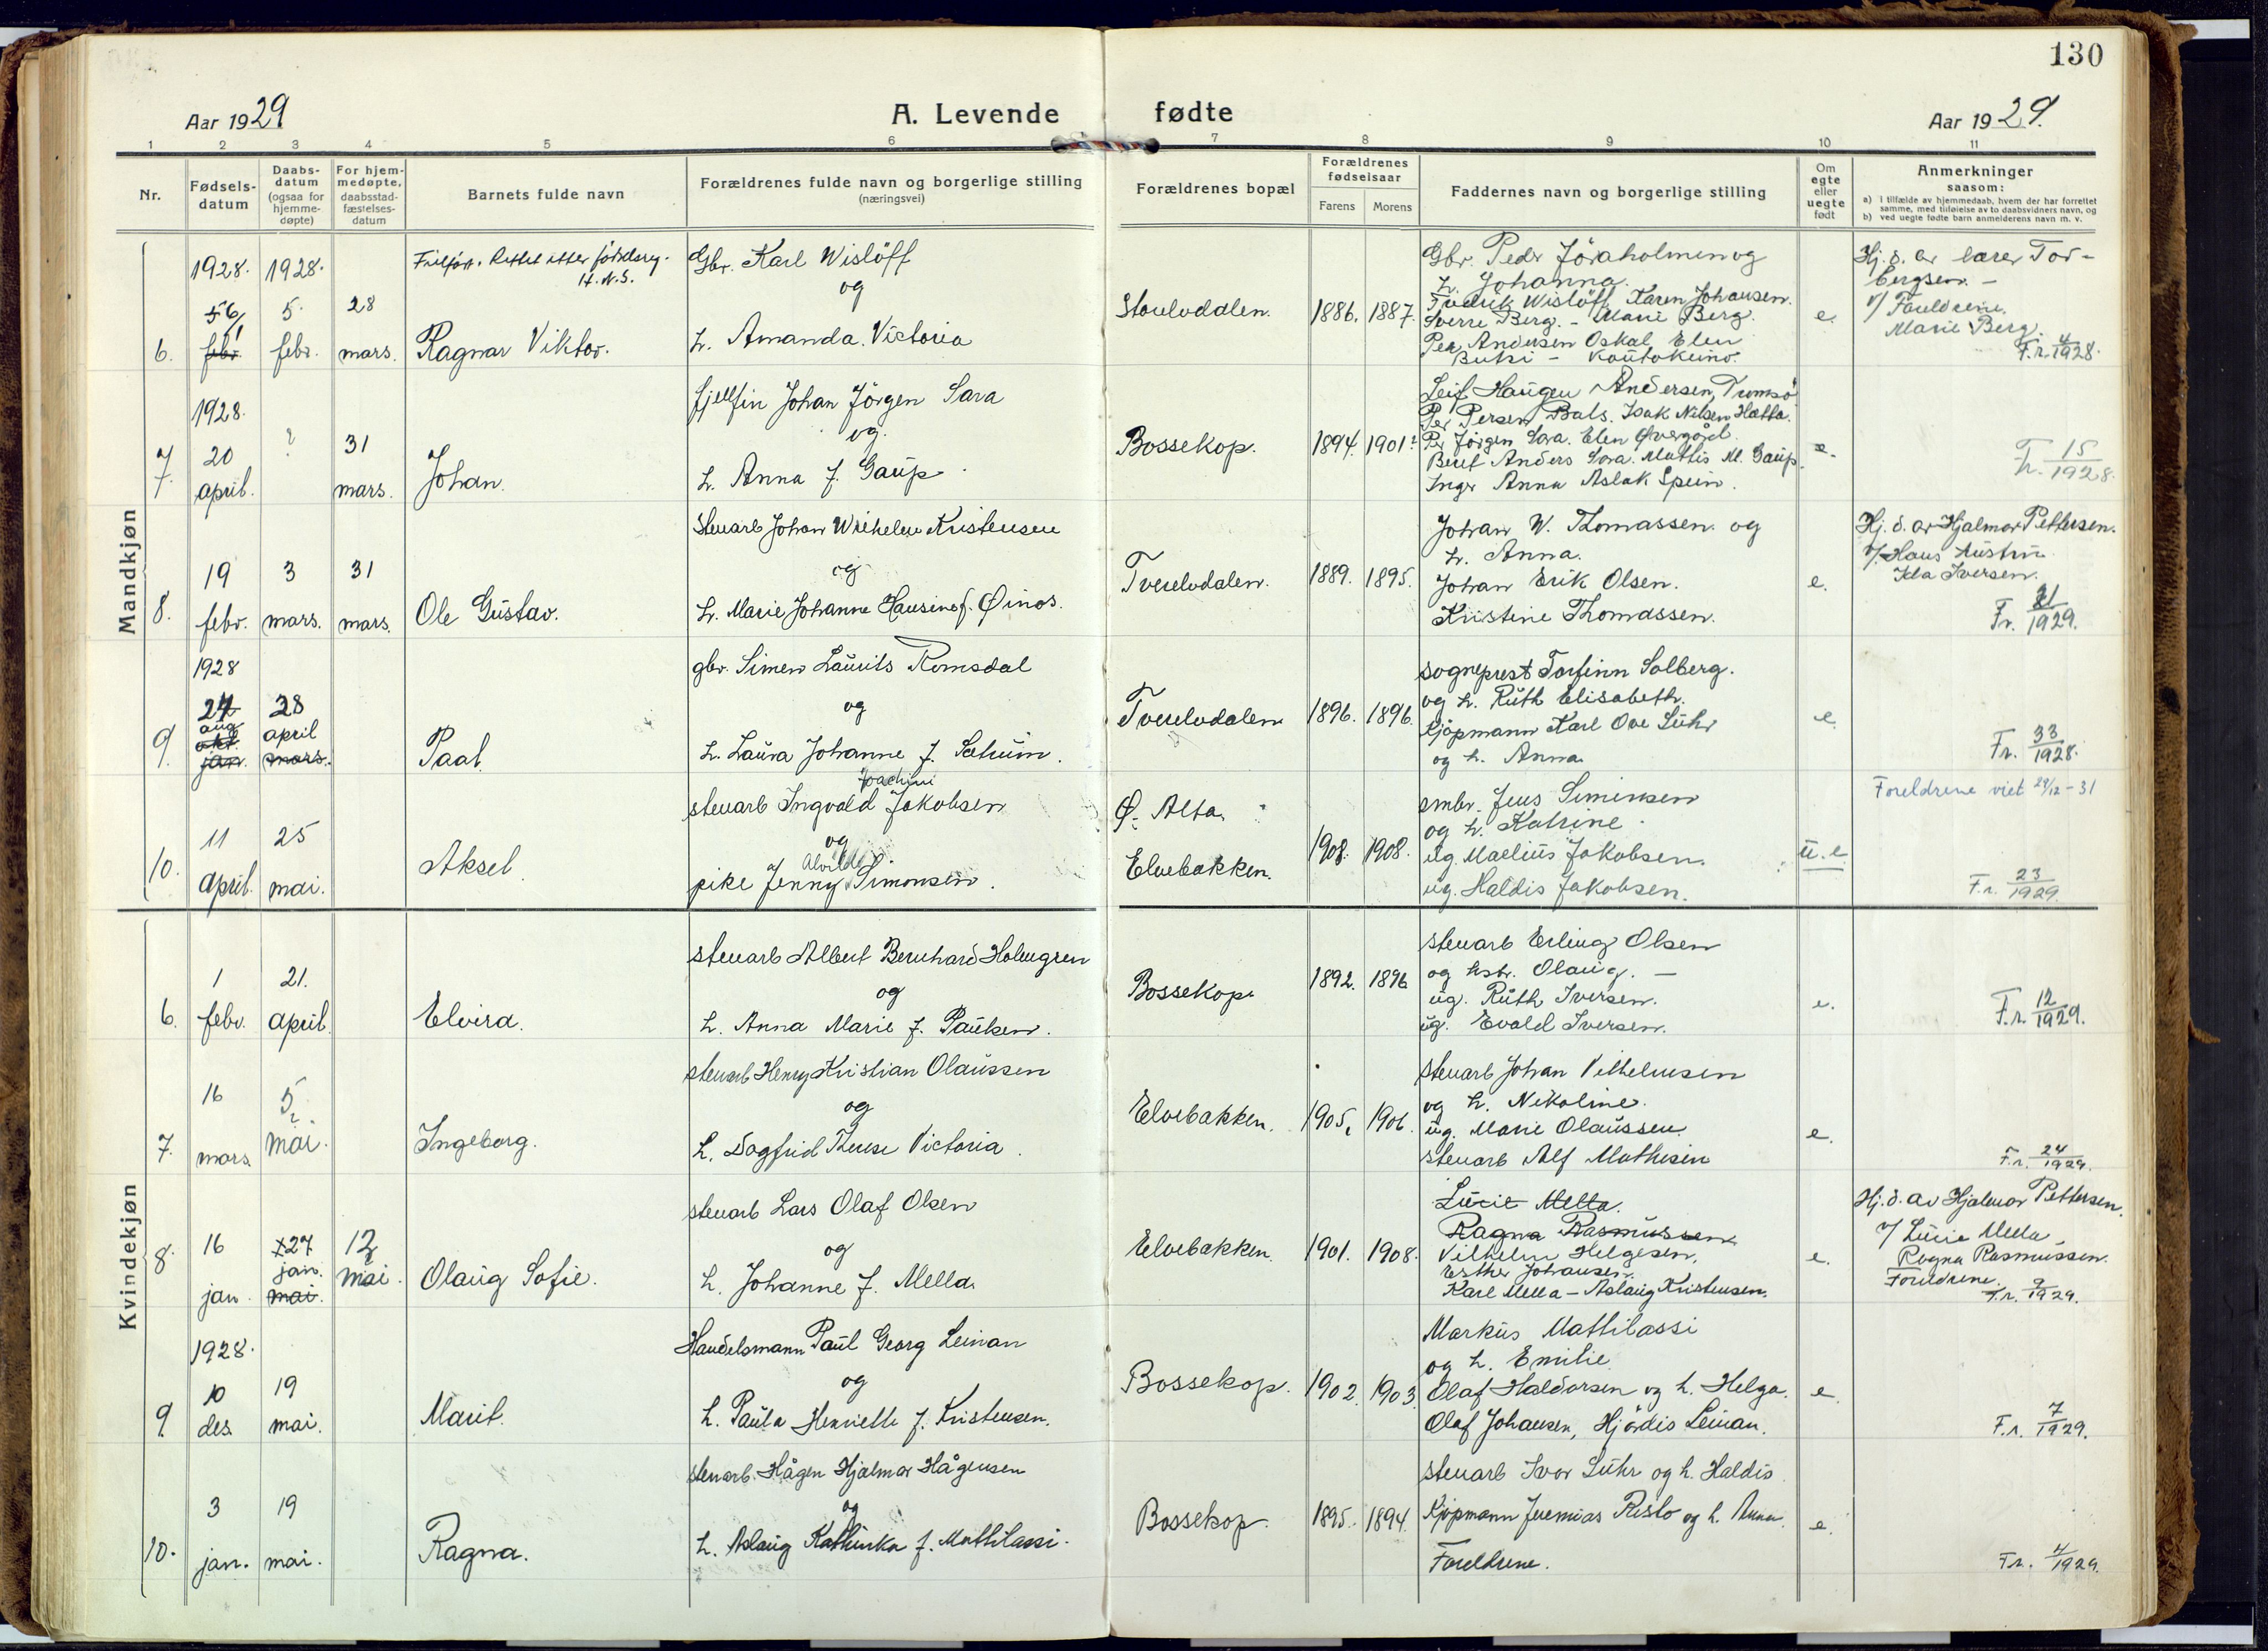 130
Aar 1929
A. Levende fødte
Aar 1929.
1 2 3 4 5 6 7 8 9 10 11
Nr.
Fødsels-
datum
Daabs-
datum
(ogsaa for
hjemme-
døpte)
For hjem-
medøpte,
daabsstad-
fæstelses-
datum
Barnets fulde navn
Forældrenes fulde navn og borgerlige stilling
(næringsvei)
Forældrenes bopæl
Forældrenes
fødselsaar
Farens Morens
Faddernes navn og borgerlige stilling
Om
egte
eller
uegte
født
Anmerkninger
saasom:
a) i tilfælde av hjemmedaab, hvem der har forrettet
samme, med tilføielse av to daabsvidners navn, og
b) ved uegte fødte barn anmelderens navn m. v.
Mandkjøn
6.
1928.
febr.
1928.
5.
febr.
28
mars.
H.N.S.
Ragnar Viktor.
Gbr. Karl Wislöff
og
h. Amanda Victoria
1886. 1887.
Gbr. Peder Jöraholmen og
h. Johanna.
Fredrik Wislöff, Karen Johansen.
Sverre Berg. - Marie Berg.
Per Andersen Oskal, Elen
Buksi - Kautokeino.
e.
Hj. d. av lærer Tor-
bergsen. -
v/ Foreldrene.
Marie Berg.
F.r. 4/1928.
7.
1928.
20
april.
?
31
mars.
Johan.
fjellfin Johan Jörgen Sara
og
h. Anna f. Gaup.
Bossekop.
1894. 1901?
Leif Haugen Andersen, Tromsö
Per Persen Bals. Isak Nilsen Hætta.
Per Jörgen Sara. Elen Øvergård.
Berit Anders Sara. Mattis M. Gaup.
Inger Anna Aslak Spein.
e.
Fr. 15/1928.
8.
19
febr.
3
mars.
31
mars.
Ole Gustav.
Stenarb Johan Wilhelm Kristensen
og
h. Marie Johanne Hansine f. Øinos.
Tverelvdalen.
1889. 1895.
Johan W. Thomassen og
h. Anna.
Johan Erik Olsen.
Kristine Thomassen.
e.
Hj. d. av Hjalmar Pettersen.
v/ Hans
Ida Iversen.
Fr. 21/1929.
9.
1928
24
aug
okt.
jan.
28
april
mars.
Paal.
gbr. Simen Laurits Romsdal
og
h. Laura Johanne f. Sætrum.
Tverelvdalen
1896. 1896.
sogneprest Torfinn Solberg.
og h. Ruth Elisabeth.
Kjöpmann Karl Ove Suhr
og h. Anna
e.
Fr. 33/1928.
10.
11
april.
25
mai.
Aksel.
Joachim
stenarb Ingvald Jakobsen
og
Alvilde
pike Jenny Simonsen.
Ø. Alta.
Elvebakken.
1908. 1908.
smbr. Jens Simensen
og h. Katrine
ug. Maelius Jakobsen.
ug. Haldis Jakobsen.
u.e.
Foreldrene viet 29/12-31
F.r. 23/1929.
Kvindekjøn
6.
1
febr.
21.
april.
Elvira.
stenarb Albert Bernhard Holmgren
og
h. Anna Marie f. Paulsen.
Bossekop.
1892. 1896
stenarb Erling Olsen
og hstr. Olaug. -
ug. Ruth Iversen.
ug. Evald Iversen.
e.
F.r. 12/1929.
7.
16
mars.
5
mai.
Ingeborg.
stenarb Henry Kristian Olaussen
og
h. Dagfrid Therese Victoria.
Elvebakken.
1905. 1906.
stenarb Johan Vilhelmsen
og h. Nikoline.
ug. Marie Olaussen.
stenarb Alf Mathisen
e.
F.r. 24/1929.
8.
16
jan.
27
jan.
mai.
12
mai.
Olaug Sofie.
stenarb Lars Olaf Olsen
og
h. Johanne f. Mella.
Elvebakken.
1901. 1908.
Lucie Mella.
Ragna Rasmussen
Vilhelm Helgesen,
Esther Johansen.
Karl Mella - Aslaug Kristensen.
e.
Hj. d. av Hjalmar Pettersen.
v/ Lucie Mella -
Ragna Rasmussen.
Foreldrene.
F.r. 9/1929.
9.
1928.
10
des.
19
mai.
Marit.
Handelsmann Paul Georg Leinan
og
h. Paula Henriette f. Kristensen.
Bossekop.
1902. 1903.
Markus Mattilassi
og h. Emilie
Olaf Haldorsen og h. Helga.
Olaf Johansen, Hjördis Leinan.
e.
F.r. 7/1929.
10.
3
jan.
19
mai.
Ragna.
stenarb. Hågen Hjalmar Hågensen
og
h. Aslaug Kathinka f. Mattilassi.
Bossekop.
1895. 1894.
stenarb Ivar Suhr og h. Haldis
Kjöpmann Jeremias Risto og h. Anna.
Foreldrene.
e.
Fr. 4/1929.